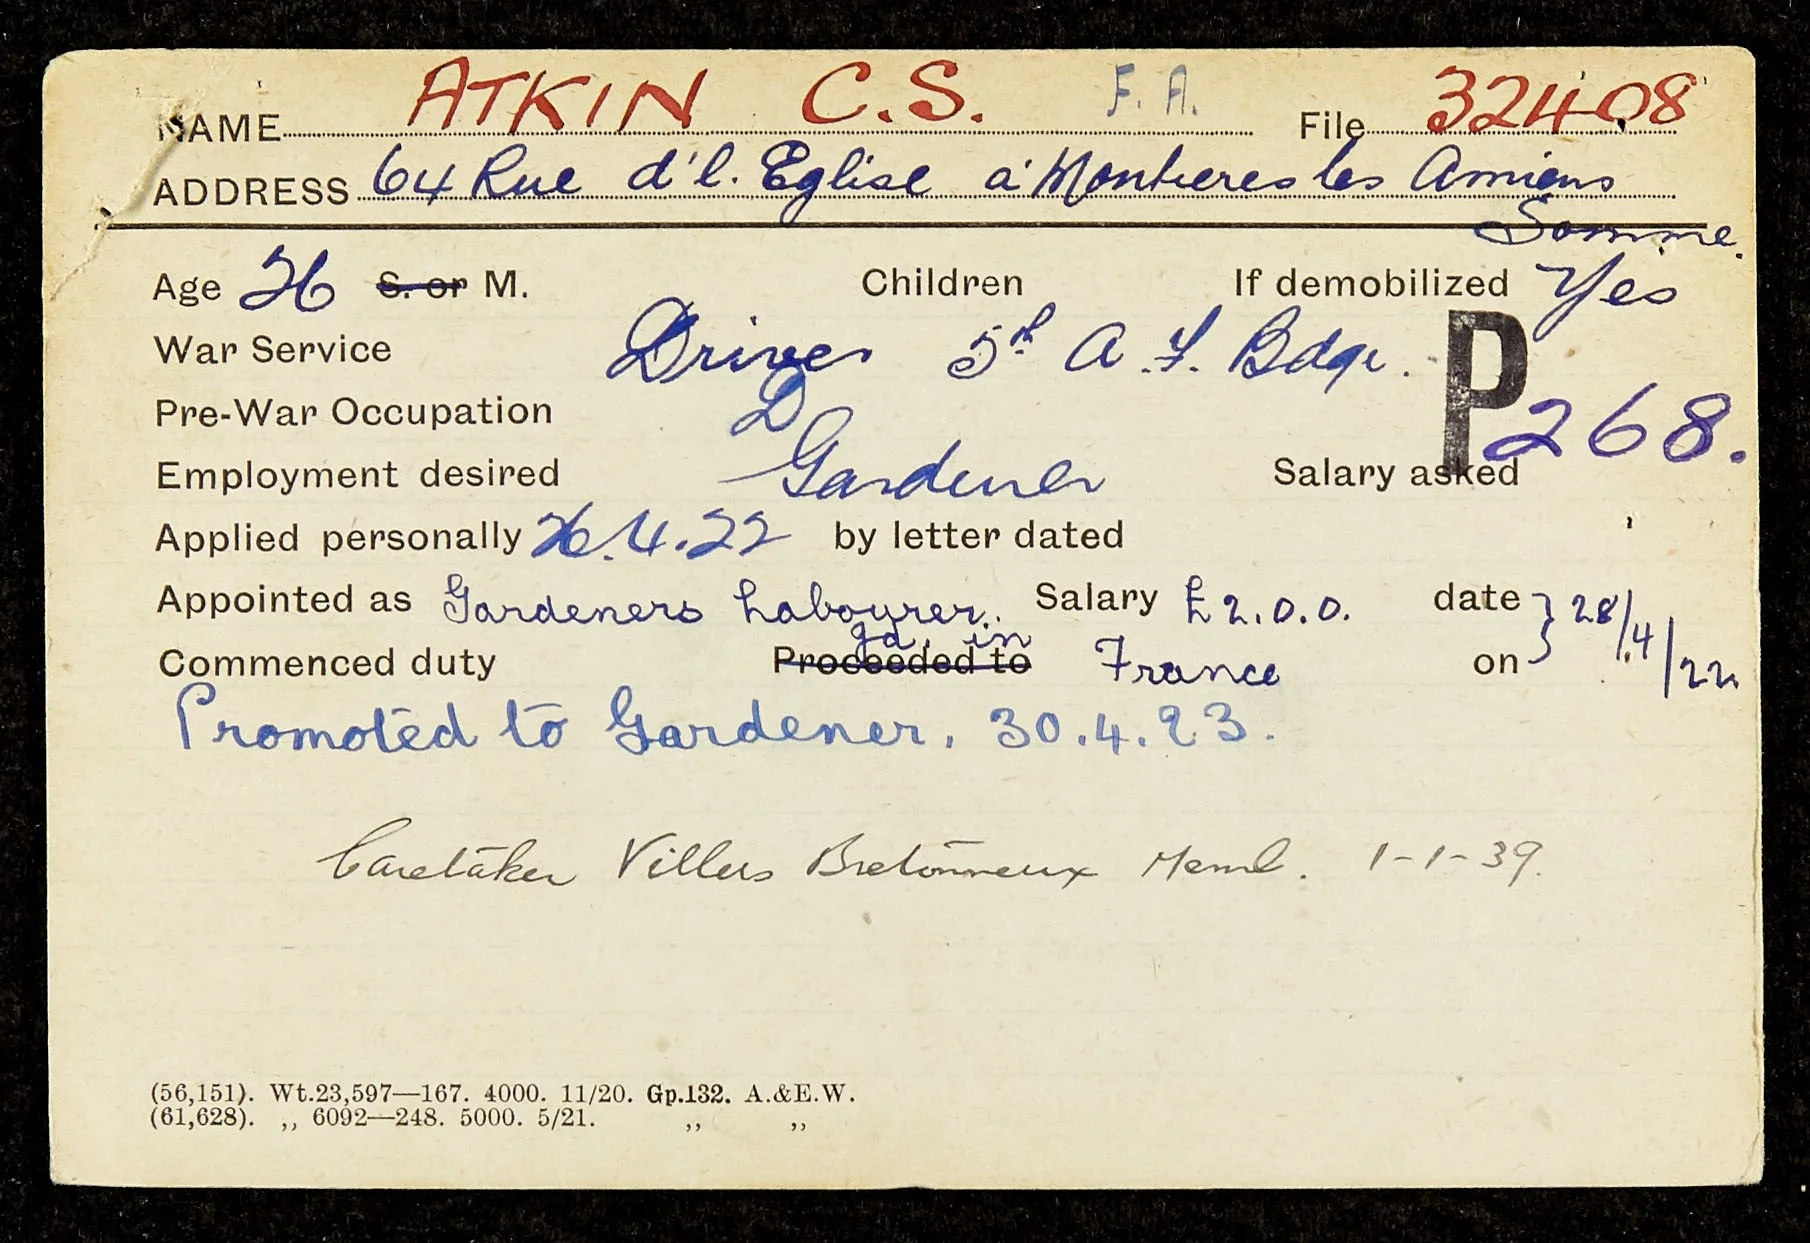 NAME ATKIN C.S. F.A. File 32408
ADDRESS 64 Rue d'l. Eglise a' Montieres les Amiens
Somme.
Age 26 S. or M. Children If demobilized Yes
War Service Driver 5th A.F. Bdge.
Pre-War Occupation D P268.
Employment desired Gardener Salary asked
Applied personally 26.4.22 by letter dated
Appointed as Gardeners Labourer. Salary £2.0.0. date } 28/4/22
in
Commenced duty Proceeded to France on
Promoted to Gardener. 30.4.23.
Caretaker Villers Bretonneux Meml. 1-1-39.
(56,151). Wt.23,597—167. 4000. 11/20. Gp.132. A.&E.W.
(61,628). ,, 6092—248. 5000. 5/21. ,, ,,